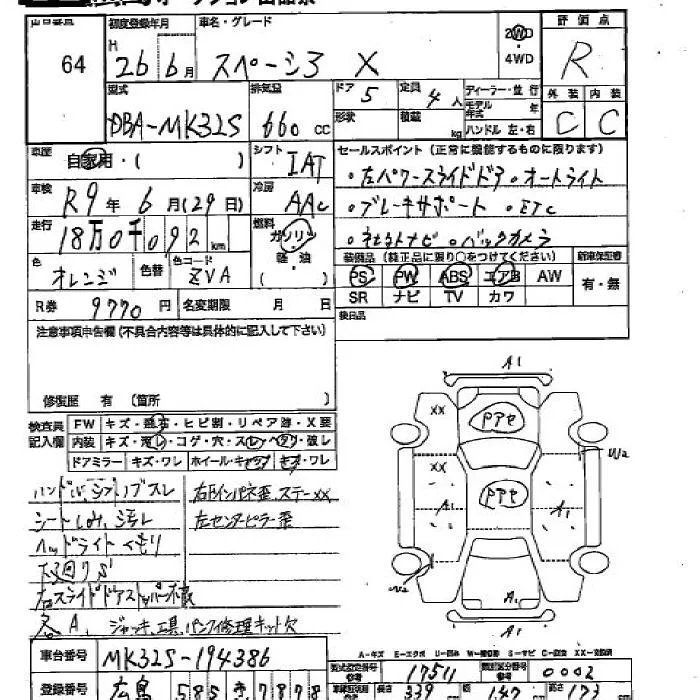 出品番号 初度登録年月 車名・グレード 評価点
64 H 26年 6月 スペーシア X 2WD・4WD R
型式 排気量 ドア 5 定員 4人 ディーラー・並行 外装 内装
DBA-MK32S 660 cc 形状 積載 kg モデル年式 年 ハンドル 左・右 C C
車歴 自家用・( ) シフト IAT セールスポイント (正常に機能するものに限ります)
車検 R9年 6月(29日) 冷房 AAC ・左パワースライドドア・オートライト
走行 18万0千092 km 燃料 ガソリン ・ブレーキサポート ・ETC
軽・油 ・社外ナビ・バックカメラ
色 オレンジ 色替 色コード ZVA ( ) 装備品 (純正品に限り○をつけてください) 新車保証書
PS PW ABS エアB AW 有・無
R券 9770円 名変期限 月 日 SR ナビ TV カワ
注意事項申告欄(不具合内容等は具体的に記入して下さい) 後日品
修復歴 有 (箇所 )
検査員記入欄 FW キズ・飛石・ヒビ割・リペア跡・X要
内装 キズ・汚レ・コゲ・穴・スレ・ヘタリ・破レ
ドアミラー キズ・ワレ ホイール・キャップ キズ・ワレ
ハンドル、シフトノブスレ 右Fインパネ歪、ステーXX
シートしみ、汚レ 左センターピラー歪
ヘッドライトくもり
下廻りS
右スライドドアストッパー欠
各A、 ジャッキ、工具、パンク修理キット欠
A1
XX Pアセ
W2
XX Pアセ
A1 A1
W2 A1
A1
A-キズ E-エクボ U-凹み W-補修跡 S-サビ C-腐食 XX-交換済
車台番号 MK32S-194386 型式指定番号 参考 17511 類別区分番号 参考 0002
登録番号 広島 585 き 7878 長さ 339 cm 幅 147 cm 高さ 173